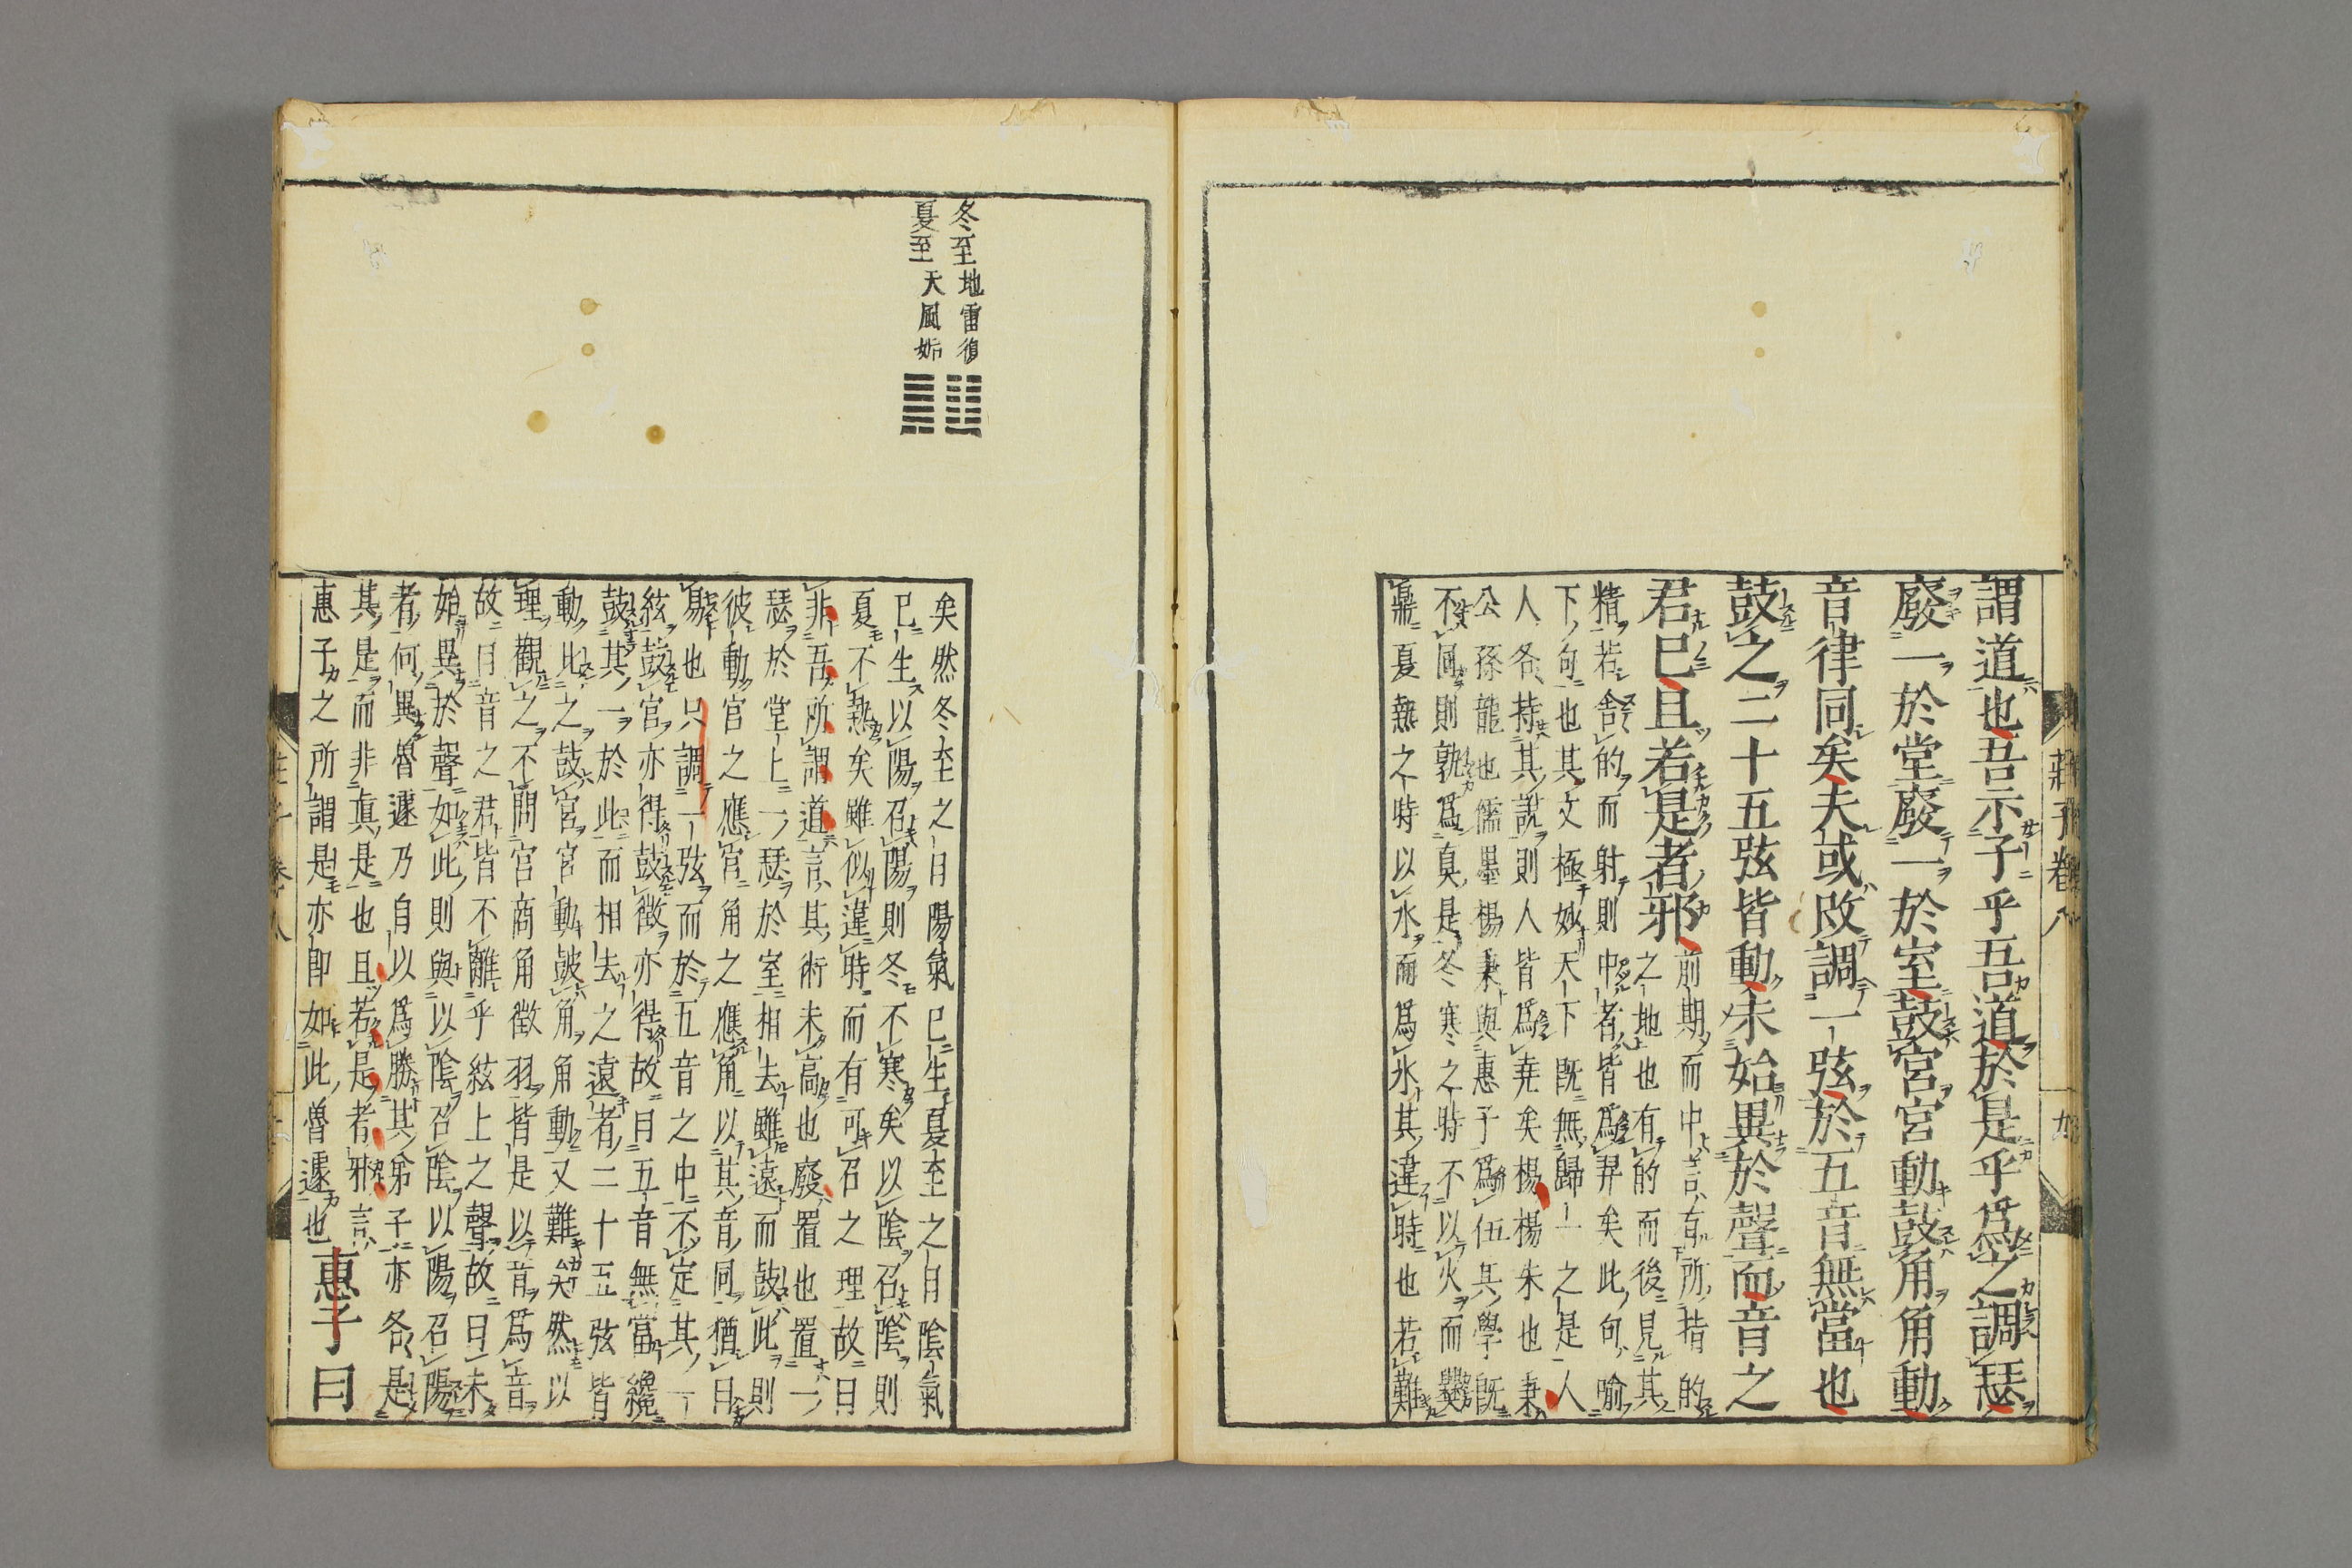 謂道也吾示子乎吾道於是乎爲之調瑟
廢一於堂廢一於室鼓宮宮動鼓角角動
音律同矣夫或改調一弦於五音無當也
鼓之二十五弦皆動未始異於聲而音之
君已且若是者邪
前期而中言有所指的
之地也有的而後見其
精若舎的而射則中者皆爲羿矣此句喻
下句也其文極妙天下既無歸一之是人
人各持其說則人皆爲堯矣楊楊朱也秉
公孫龍也儒墨楊秉與惠子爲伍其學既
不同則孰爲眞是冬寒之時不以火而爨
鼎夏熱之時以水而爲氷其違時也若難
莊子卷八
冬至地雷復
夏至天風姤
矣然冬至之日陽氣已生夏至之日陰氣
已生以陽召陽則冬不寒矣以陰召陰則
夏不熱矣雖似違時而有可召之理故曰
非吾所謂道言其術未高也廢置也置一
瑟於堂上一瑟於室相去雖遠而鼓此則
彼動宮之應宮角之應角以其音同猶曰
易也只調一弦而於五音之中不定其一
絃鼓宮亦得鼓徵亦得故曰五音無當纔
鼓其一於此而相去之遠者二十五弦皆
動此之鼓宮宮動鼓角角動又難矣然以
理觀之不問宮商角徵羽皆是以音爲音
故曰音之君皆不離乎絃上之聲故曰未
始異於聲如此則與以陰召陰以陽召陽
者何異魯遽乃自以爲勝其弟子亦各是
其是而非眞是也且若是者邪言
惠子之所謂是亦即如此魯遽也惠子曰